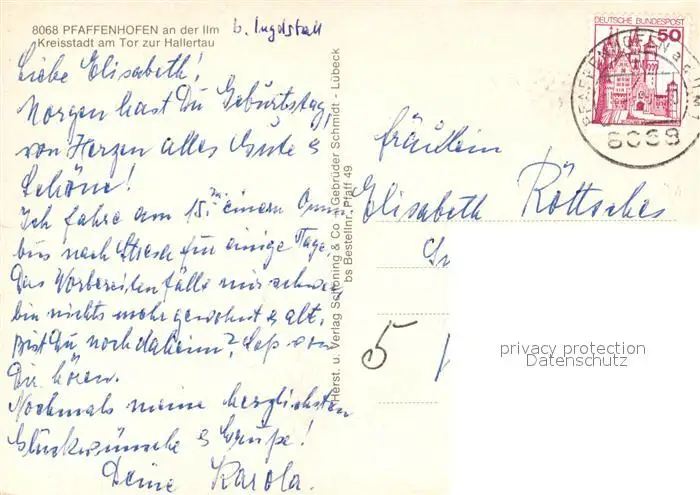 8068 PFAFFENHOFEN an der Ilm
Kreisstadt am Tor zur Hallertau
b. Ingolstadt
Liebe Elisabeth!
Morgen hast Du Geburtstag,
von Herzen alles Gute &
Schöne!
Ich fahre am 15. einem Omni
bus nach Stresa für einige Tage
Das Vorbereiten fällt mir schwer
bin nichts mehr gewohnt & alt.
Bist Du noch daheim? Laß von
Dir hören.
Nochmals meine herzlichsten
Glückwünsche & Grüße!
Deine Karola.
Herst. u. Verlag Schöning & Co Gebrüder Schmidt - Lübeck
bs Bestellnr. Pfaff 49
DEUTSCHE BUNDESPOST
50
8068
Fräulein
Elisabeth Röttsches
5
privacy protection
Datenschutz